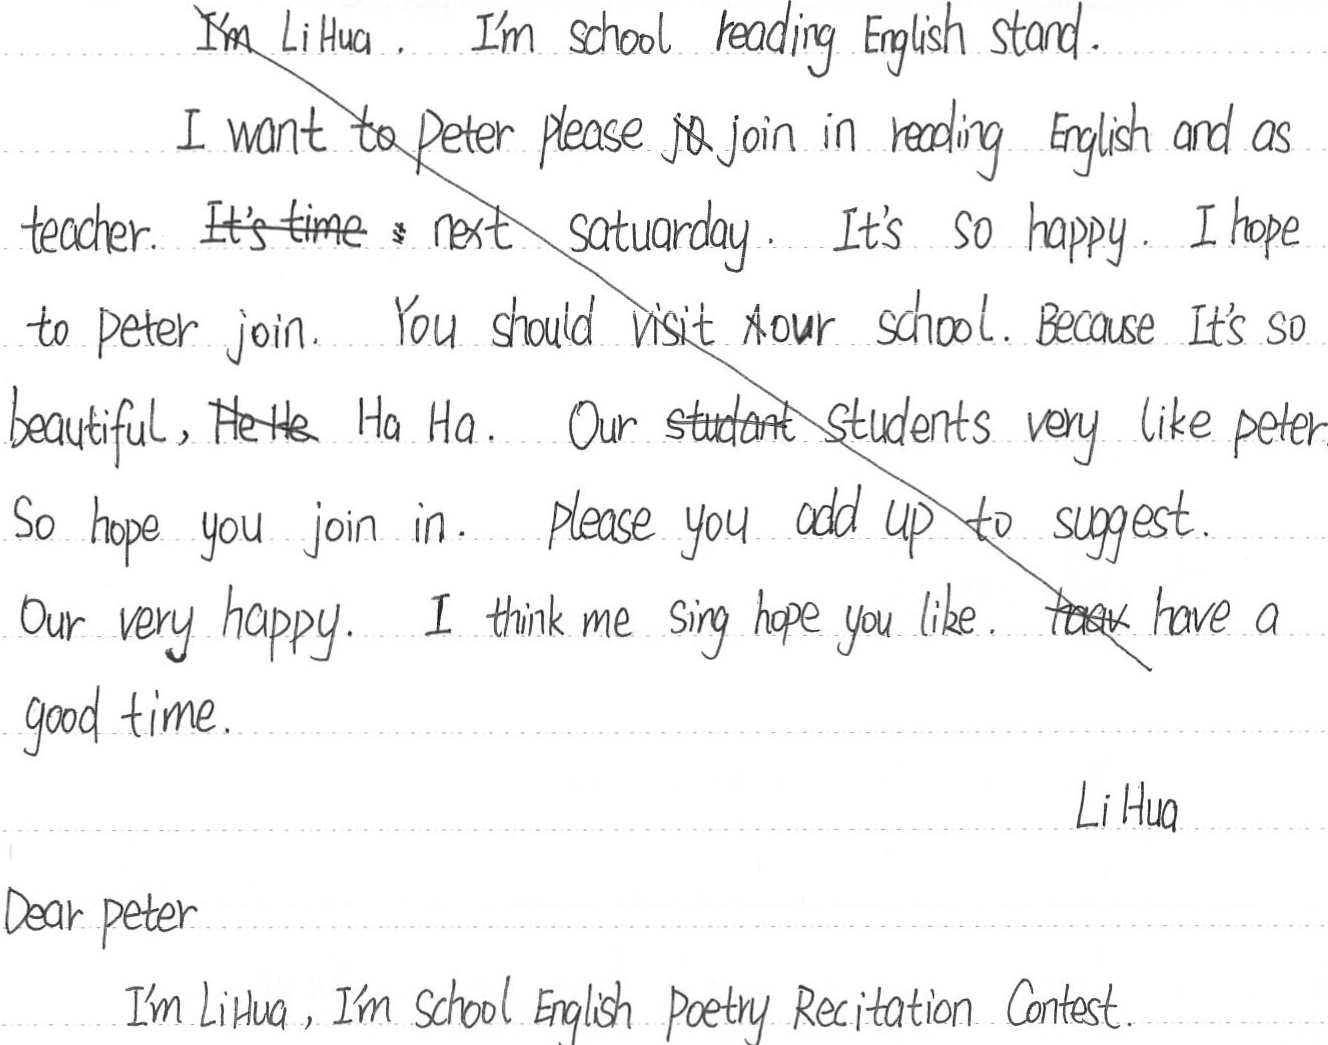 I'm Li Hua. I'm school reading English stand.
I want to peter please join in reading English and as
teacher. It's time : next satuarday. It's so happy. I hope
to peter join. You should visit our school. Because It's so
beautiful, He He Ha Ha. Our studant students very like peter.
So hope you join in. please you add up to suggest.
Our very happy. I think me sing hope you like. have a
good time.
Li Hua
Dear peter
I'm Li Hua, I'm school English Poetry Recitation Contest.